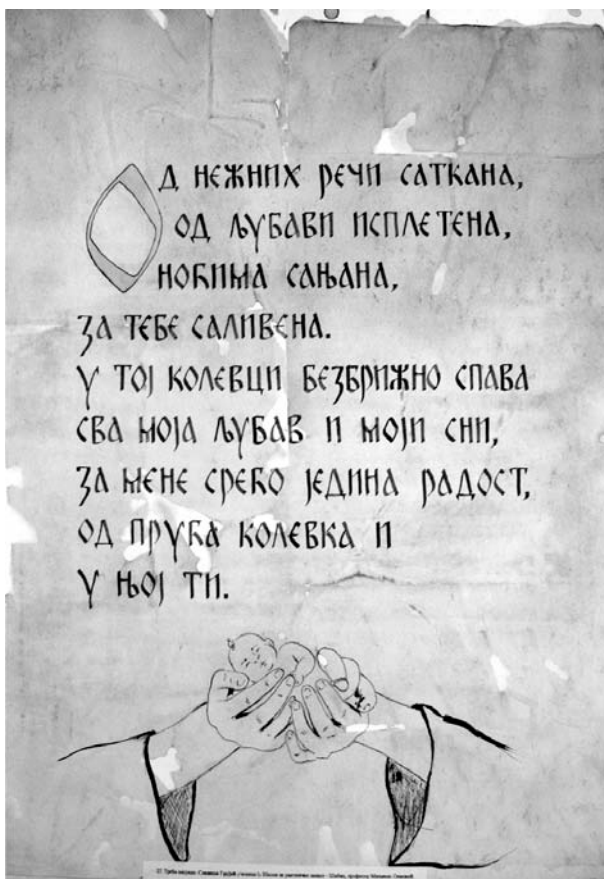 Од нежних речи саткана,
од љубави исплетена,
ноћима сањана,
за тебе саливена.
У тој колевци безбрижно спава
сва моја љубав и моји сни,
за мене срећо једина радост,
од прућа колевка и
у њој ти.